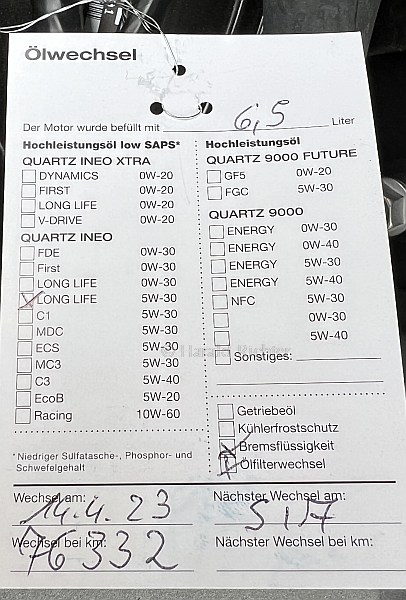 Ölwechsel
Der Motor wurde befüllt mit 6,5 Liter
Hochleistungsöl low SAPS*
QUARTZ INEO XTRA
DYNAMICS 0W-20
FIRST 0W-20
LONG LIFE 0W-20
V-DRIVE 0W-20
QUARTZ INEO
FDE 0W-30
First 0W-30
LONG LIFE 0W-30
LONG LIFE 5W-30
C1 5W-30
MDC 5W-30
ECS 5W-30
MC3 5W-30
C3 5W-40
EcoB 5W-20
Racing 10W-60
*Niedriger Sulfatasche-, Phosphor- und
Schwefelgehalt
Hochleistungsöl
QUARTZ 9000 FUTURE
GF5 0W-20
FGC 5W-30
QUARTZ 9000
ENERGY 0W-30
ENERGY 0W-40
ENERGY 5W-30
ENERGY 5W-40
NFC 5W-30
0W-30
5W-40
Sonstiges:
Getriebeöl
Kühlerfrostschutz
Bremsflüssigkeit
Ölfilterwechsel
Wechsel am: 14.4.23
Nächster Wechsel am:
Wechsel bei km: 76332
Nächster Wechsel bei km: